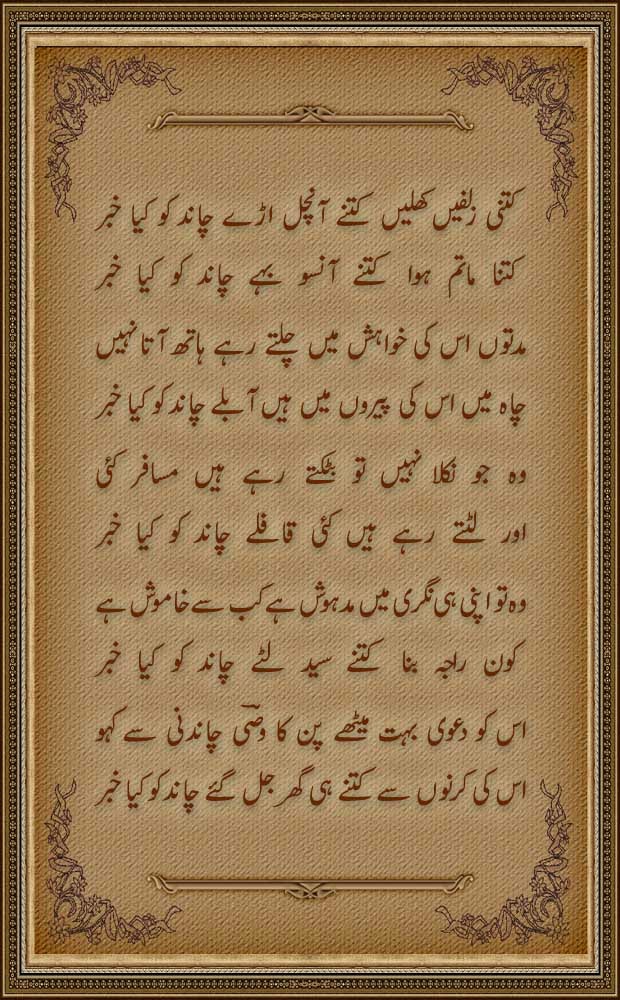 کتنی زلفیں کھلیں کتنے آنچل اڑے چاند کو کیا خبر
کتنا ماتم ہوا کتنے آنسو بہے چاند کو کیا خبر
مدتوں اس کی خواہش میں چلتے رہے ہاتھ آتا نہیں
چاہ میں اس کی پیروں میں ہیں آبلے چاند کو کیا خبر
وہ جو نکلا نہیں تو بھٹکتے رہے ہیں مسافر کئی
اور لٹتے رہے ہیں کئی قافلے چاند کو کیا خبر
وہ تو اپنی ہی نگری میں مدہوش ہے کب سے خاموش ہے
کون راجہ بنا کتنے سید لٹے چاند کو کیا خبر
اس کو دعویٰ بہت میٹھے پن کا وصیؔ چاندنی سے کہو
اس کی کرنوں سے کتنے ہی گھر جل گئے چاند کو کیا خبر